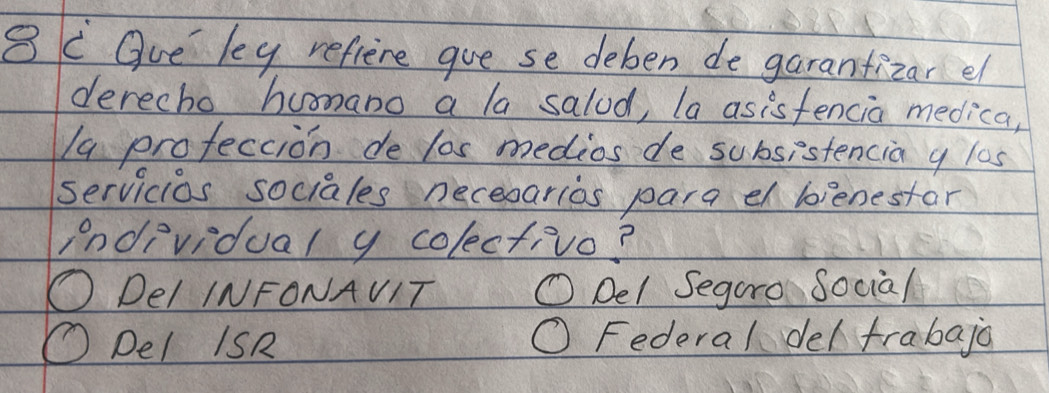 8 ¿ Qué ley refiere que se deben de garantizar el
derecho humano a la salud, la asistencia medica,
la protección de los medios de subsistencia y los
servicios sociales necesarios para el bienestar
individual y colectivo?
○ Del INFONAVIT ○ Del Seguro Social
○ Del ISR ○ Federal del trabajo